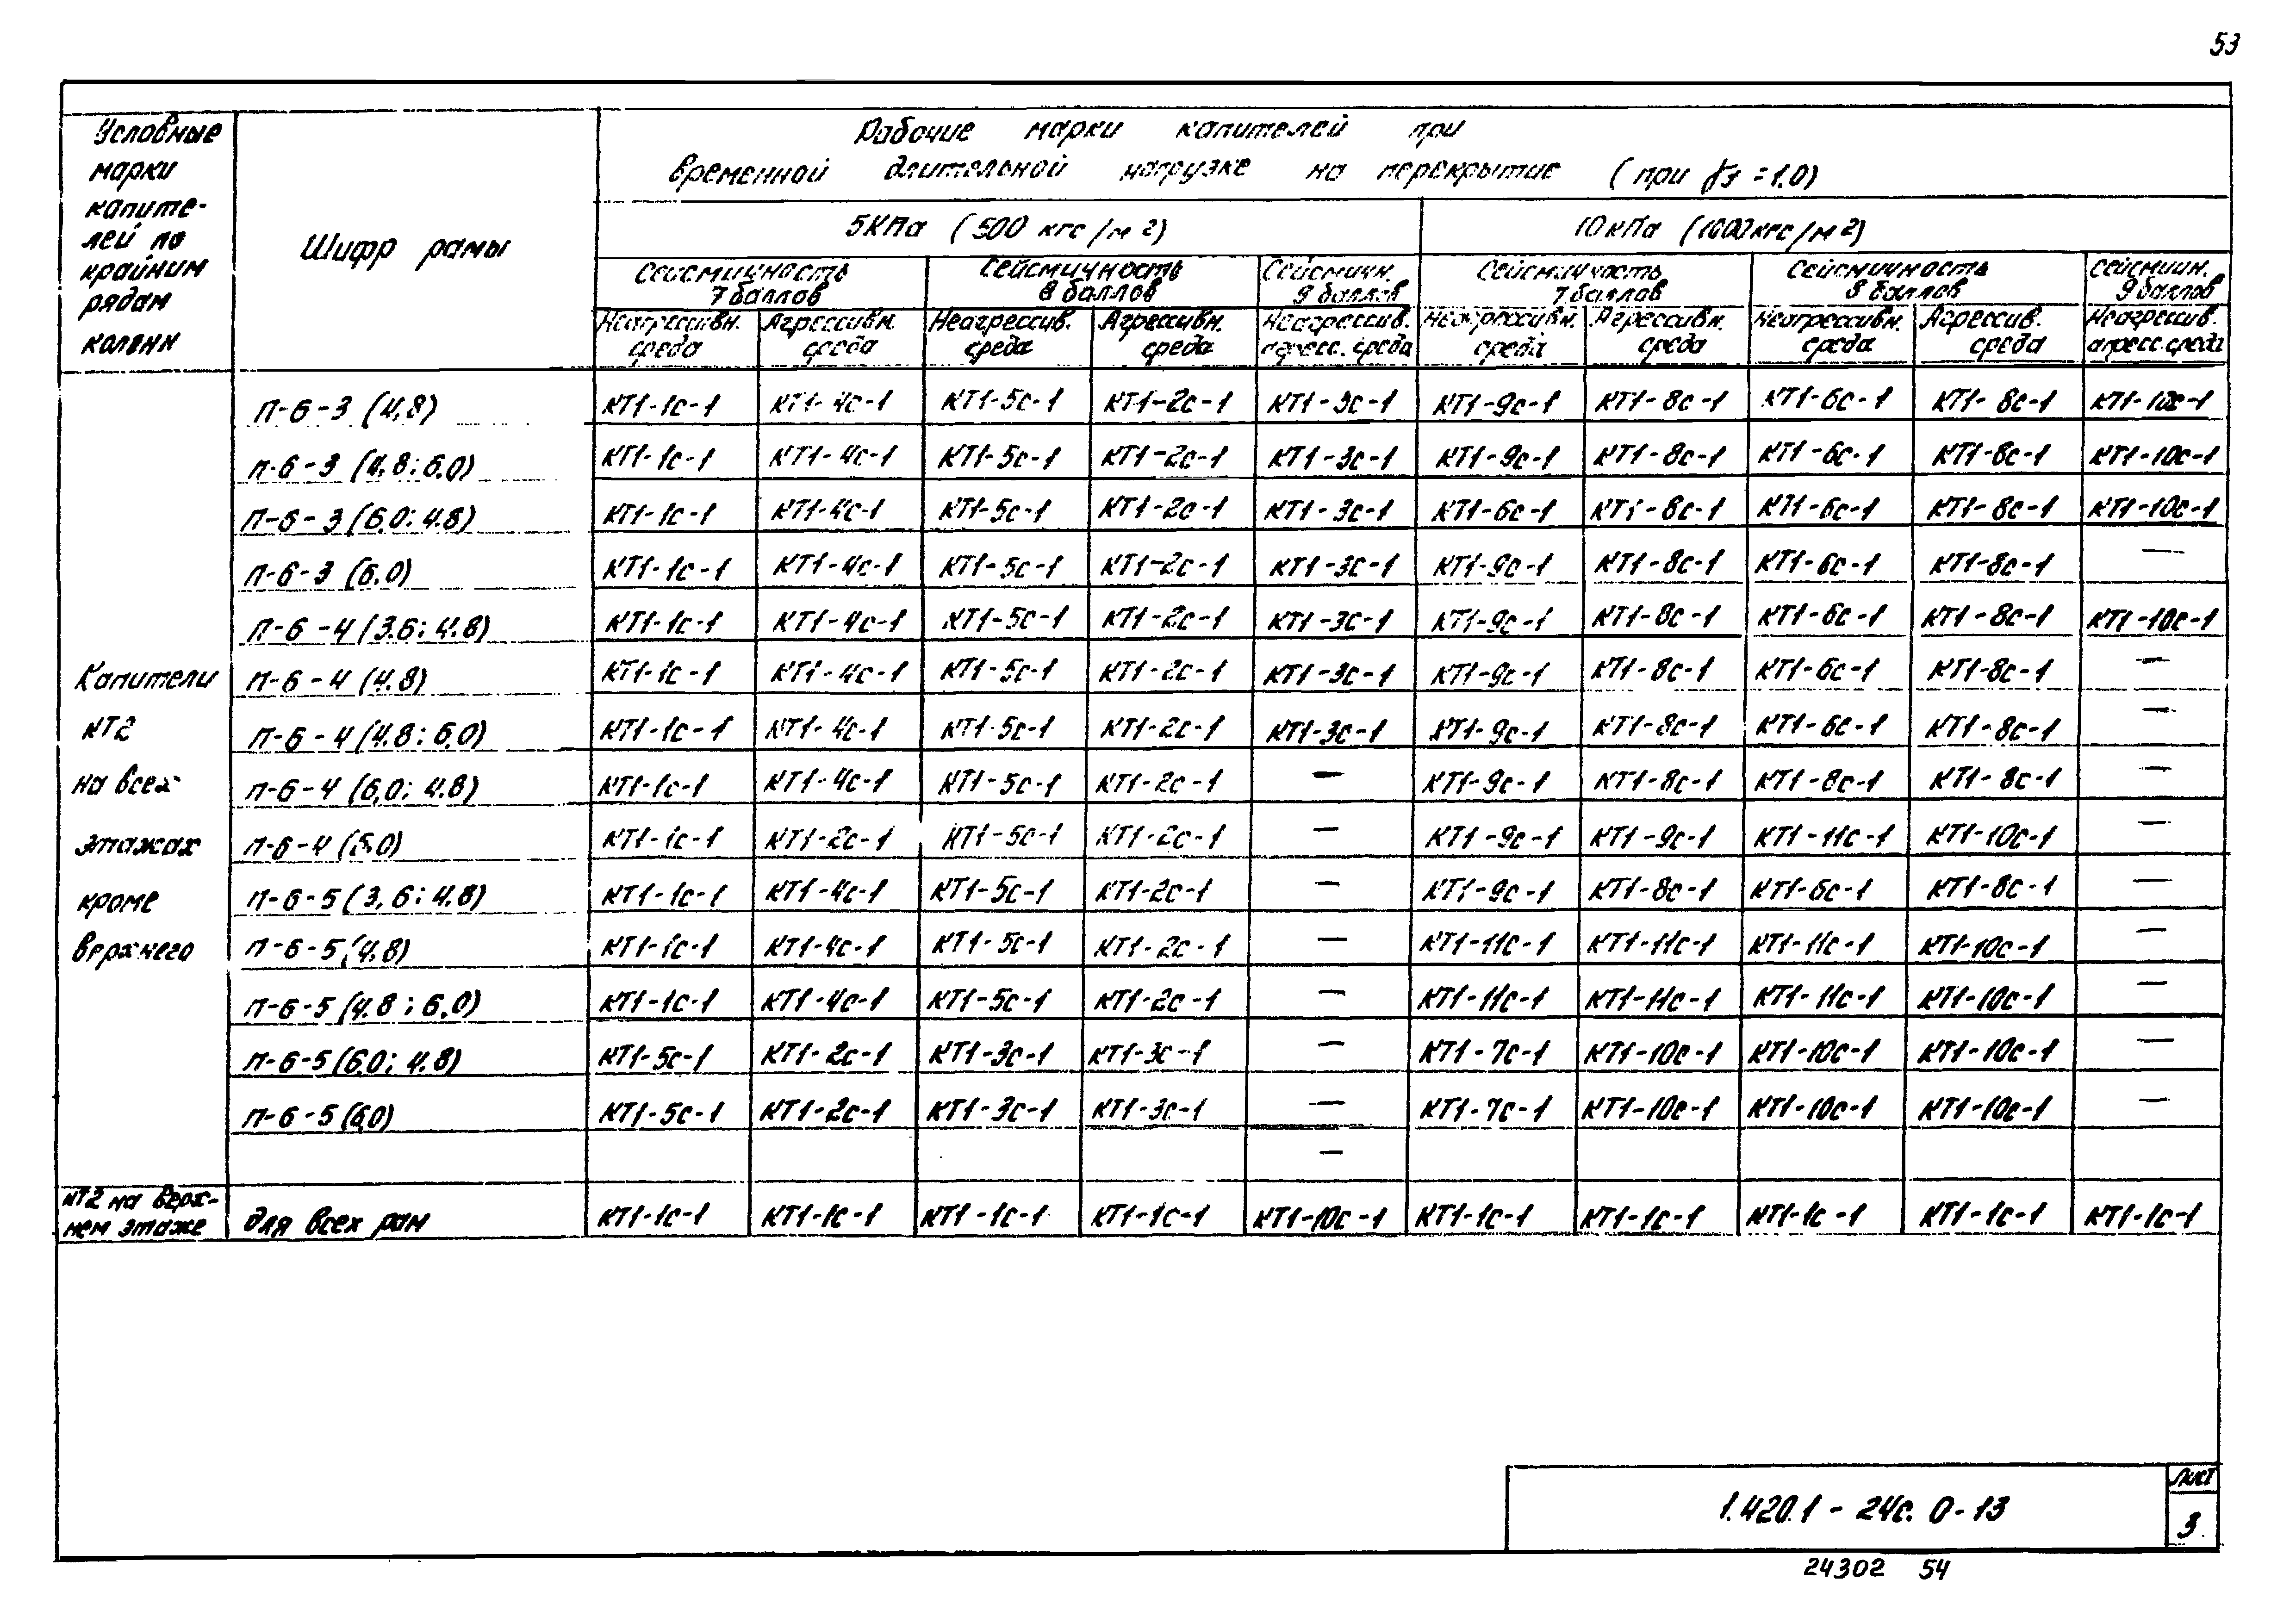 53
Условные марки капите-лей по крайним рядам колонн
Шифр рамы
Рабочие марки капителей при
временной длительной нагрузке на перекрытие (при γf =1.0)
5КПа (500 кгс/м²) 10кПа (1000кгс/м²)
Сейсмичность 7 баллов Сейсмичность 8 баллов Сейсмичн. 9 баллов Сейсмичность 7 баллов Сейсмичность 8 баллов Сейсмичн. 9 баллов
Неагрессивн. среда Агрессивн. среда Неагрессив. среда Агрессивн. среда Неагрессив. агресс. среда Неагрессивн. среда Агрессивн. среда Неагрессивн. среда Агрессив. среда Неагрессив. агресс. среда
П-6-3 (4,8) КТ1-1с-1 КТ1-4с-1 КТ1-5с-1 КТ1-2с-1 КТ1-3с-1 КТ1-9с-1 КТ1-8с-1 КТ1-6с-1 КТ1-8с-1 КТ1-10с-1
П-6-3 (4,8; 6,0) КТ1-1с-1 КТ1-4с-1 КТ1-5с-1 КТ1-2с-1 КТ1-3с-1 КТ1-9с-1 КТ1-8с-1 КТ1-6с-1 КТ1-8с-1 КТ1-10с-1
П-6-3 (6,0; 4.8) КТ1-1с-1 КТ1-4с-1 КТ1-5с-1 КТ1-2с-1 КТ1-3с-1 КТ1-6с-1 КТ1-8с-1 КТ1-6с-1 КТ1-8с-1 КТ1-10с-1
П-6-3 (6,0) КТ1-1с-1 КТ1-4с-1 КТ1-5с-1 КТ1-2с-1 КТ1-3с-1 КТ1-9с-1 КТ1-8с-1 КТ1-6с-1 КТ1-8с-1 —
П-6-4 (3.6; 4.8) КТ1-1с-1 КТ1-4с-1 КТ1-5с-1 КТ1-2с-1 КТ1-3с-1 КТ1-9с-1 КТ1-8с-1 КТ1-6с-1 КТ1-8с-1 КТ1-10с-1
Капители П-6-4 (4.8) КТ1-1с-1 КТ1-4с-1 КТ1-5с-1 КТ1-2с-1 КТ1-3с-1 КТ1-9с-1 КТ1-8с-1 КТ1-6с-1 КТ1-8с-1 —
КТ2 П-6-4 (4.8; 6,0) КТ1-1с-1 КТ1-4с-1 КТ1-5с-1 КТ1-2с-1 КТ1-3с-1 КТ1-9с-1 КТ1-8с-1 КТ1-6с-1 КТ1-8с-1 —
на всех П-6-4 (6,0; 4.8) КТ1-1с-1 КТ1-4с-1 КТ1-5с-1 КТ1-2с-1 — КТ1-9с-1 КТ1-8с-1 КТ1-8с-1 КТ1-8с-1 —
этажах П-6-4 (6,0) КТ1-1с-1 КТ1-2с-1 КТ1-5с-1 КТ1-2с-1 — КТ1-9с-1 КТ1-9с-1 КТ1-11с-1 КТ1-10с-1 —
кроме П-6-5 (3,6; 4.8) КТ1-1с-1 КТ1-4с-1 КТ1-5с-1 КТ1-2с-1 — КТ1-9с-1 КТ1-8с-1 КТ1-6с-1 КТ1-8с-1 —
верхнего П-6-5 (4.8) КТ1-1с-1 КТ1-4с-1 КТ1-5с-1 КТ1-2с-1 — КТ1-11с-1 КТ1-11с-1 КТ1-11с-1 КТ1-10с-1 —
П-6-5 (4.8; 6,0) КТ1-1с-1 КТ1-4с-1 КТ1-5с-1 КТ1-2с-1 — КТ1-11с-1 КТ1-11с-1 КТ1-11с-1 КТ1-10с-1 —
П-6-5 (6.0; 4.8) КТ1-5с-1 КТ1-2с-1 КТ1-3с-1 КТ1-3с-1 — КТ1-7с-1 КТ1-10с-1 КТ1-10с-1 КТ1-10с-1 —
П-6-5 (6,0) КТ1-5с-1 КТ1-2с-1 КТ1-3с-1 КТ1-3с-1 — КТ1-7с-1 КТ1-10с-1 КТ1-10с-1 КТ1-10с-1 —
—
КТ2 на верх-нем этаже для всех рам КТ1-1с-1 КТ1-1с-1 КТ1-1с-1 КТ1-1с-1 КТ1-10с-1 КТ1-1с-1 КТ1-1с-1 КТ1-1с-1 КТ1-1с-1 КТ1-1с-1
1.420.1-24с. 0-13
Лист
3
24302 54